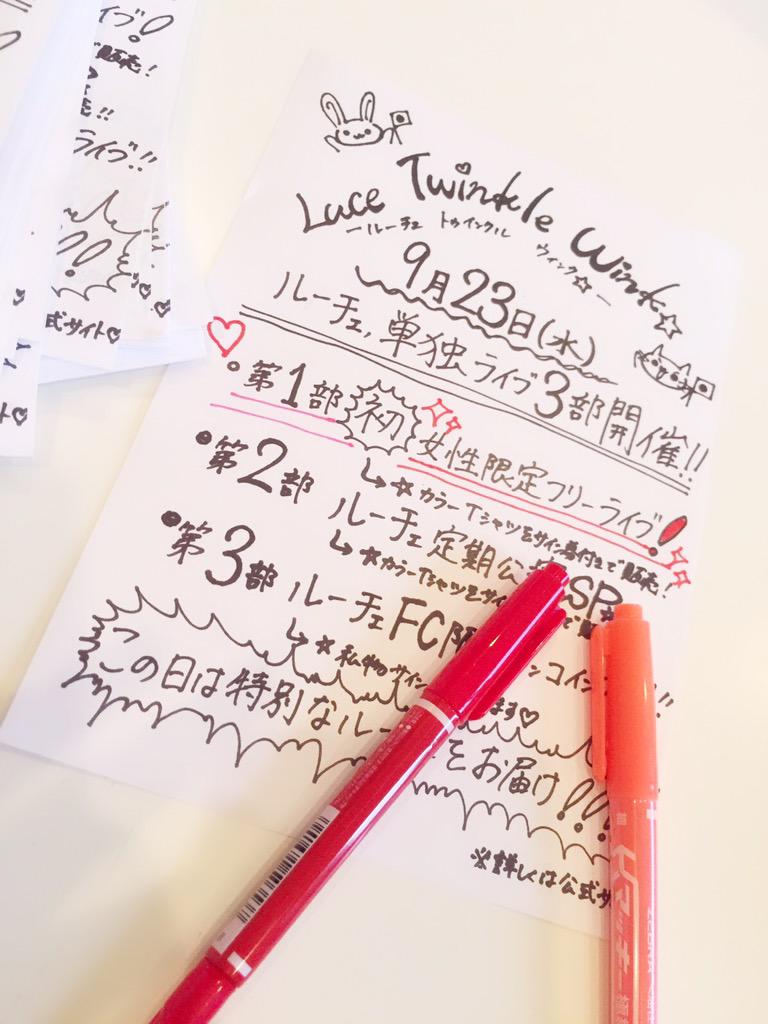 Luce Twinkle Wink☆
ールーチェ トゥインクル ウィンク☆ー
9月23日(水)
ルーチェ,単独ライブ3部開催!!
・第1部 初 女性限定フリーライブ!
↳☆カラーTシャツをサイン着付きで販売!
・第2部 ルーチェ定期公 SP
↳☆カラーTシャツをサイ で
・第3部 ルーチェFC限 ンコイン !!
↳☆私物サイン ます♡
この日は特別なルー をお届け!!!
※詳しくは公式サ
イブ!
で販売!
売!!
ライブ!!
!!
式サイト♡
マッキー
ZEBRA